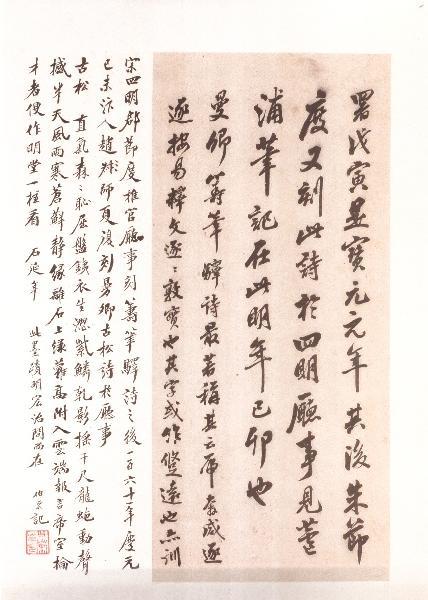 署戊寅是寶元元年其後朱節
度又刻此詩於四明廳事見蒼
浦筆記在此明年己卯也
曼卿籌筆驛詩最著稱其云席
逐按易釋文逐逐敦寶也其字或作
宋四明郡節度推官廳事刻籌筆驛詩之後一百六十一年慶元
己未汴人趙師夏復刻曼卿古松詩於廳事
古松 直氣森森恥屈盤鐵衣生澀紫鱗乾影搖千尺龍蛇動聲
撼半天風雨寒蒼蘚靜緣離石上綠蘿高附入雲端報言帝室掄
才者便作明堂一柱看 石延年 此墨蹟明宏治間尚存
記